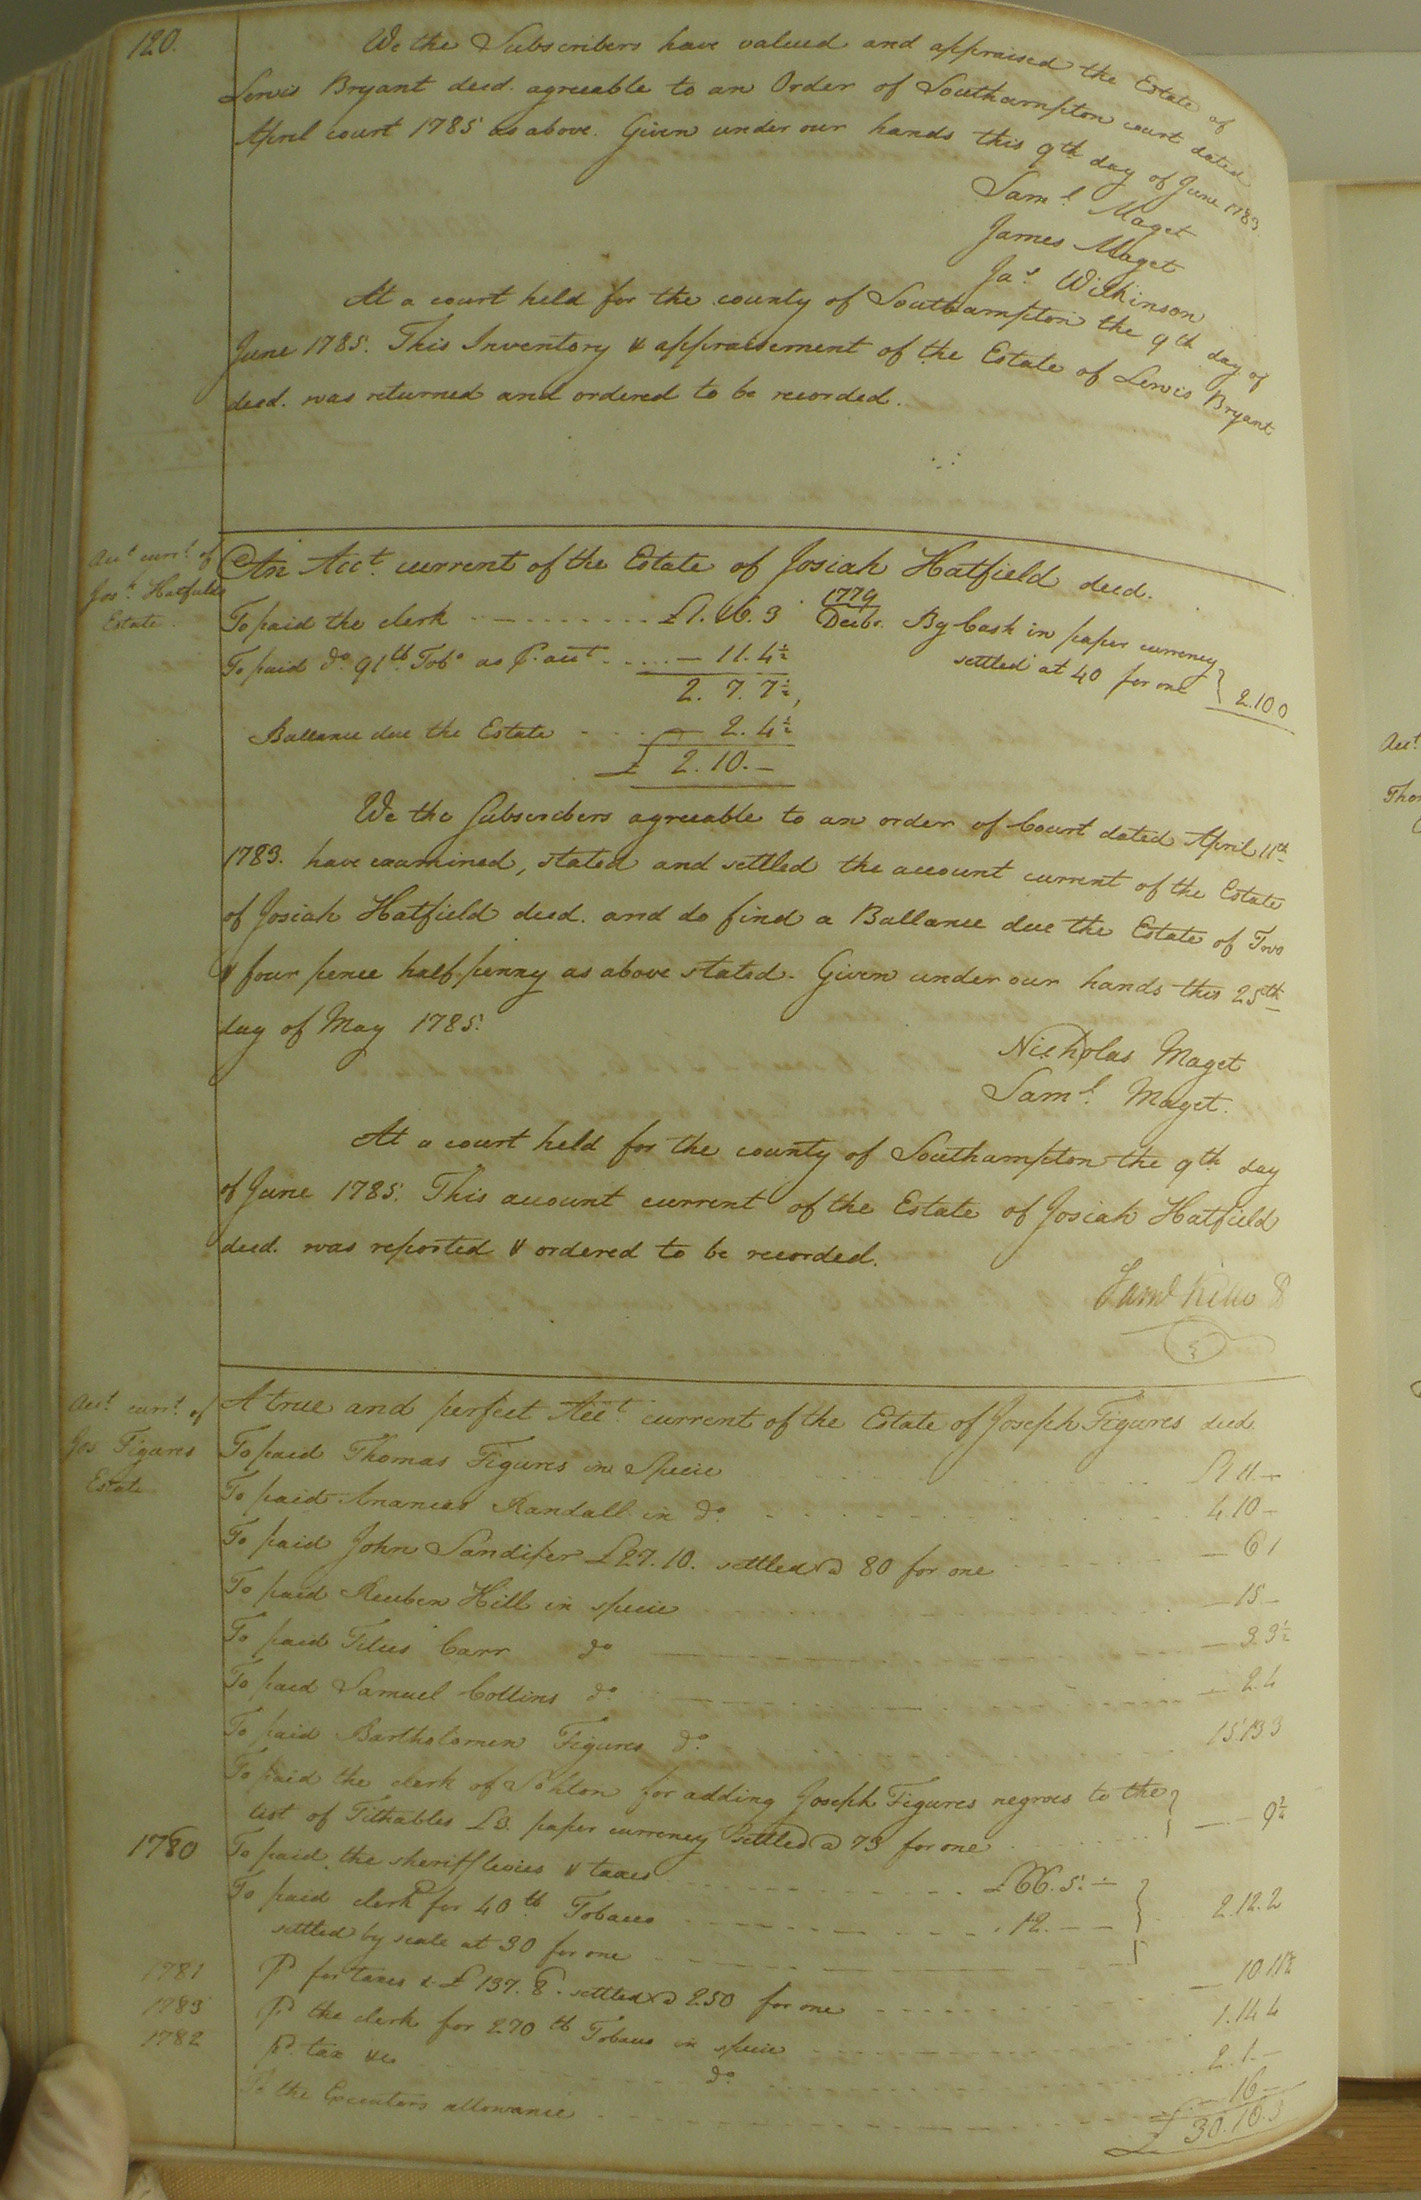 120.
We the Subscribers have valued and appraised the Estate of
Lewis Bryant decd. agreeable to an Order of Southampton court dated
April court 1785 as above. Given under our hands this 9th day of June 1785.
Saml. Maget
James Maget
Jas. Wilkinson
At a court held for the county of Southampton the 9th day of
June 1785. This Inventory & appraisement of the Estate of Lewis Bryant
decd. was returned and ordered to be recorded.
Acct. currt. of
Josh. Hatfields
Estate.
An Acct. current of the Estate of Josiah Hatfield decd.
To paid the clerk £1.16.3 1779 Decbr. By Cash in paper currency
To paid do. 91 lb Tobo. as P. acct. — 11.4½ settled at 40 for one } 2.10 0
2. 7. 7½
Ballance due the Estate — 2. 4½
£ 2.10.—
We the Subscribers agreeable to an order of Court dated April 11th
1783. have examined, stated and settled the account current of the Estate
of Josiah Hatfield decd. and do find a Ballance due the Estate of Two
& four pence half penny as above stated. Given under our hands this 25th
day of May 1785.
Nicholas Maget
Saml. Maget.
At a court held for the county of Southampton the 9th day
of June 1785. This account current of the Estate of Josiah Hatfield
decd. was reported & ordered to be recorded.
Saml Kello
Acct. currt. of
Jos Figures
Estate
A true and perfect Acct. current of the Estate of Joseph Figures decd.
To paid Thomas Figures in Specie
To paid Ananias Randall in do. 4.10 —
To paid John Sandifer £27.10. settled @ 80 for one — 6 1
To paid Reuben Hill in specie — 15 —
To paid Titus Carr do — 3.3½
To paid Samuel Collins do. — 2.4
To paid Bartholomew Figures do. 15.13 3
To paid the clerk of Sohton for adding Joseph Figures negroes to the }
list of Tithables £3. paper currency settled @ 73 for one — 9½
1780 To paid the sheriff levies & taxes £66.5.— }
To paid clerk for 40 lb Tobacco 12.—— } 2.12.2
settled by scale at 30 for one
1781 P. for taxes & £137.8. settled @ 250 for one — 10.11½
1783 P. the clerk for 270 lb Tobacco in specie 1.14 4
1782 P. tax &c do. 2.1.—
To the Executors allowance — 16 —
£ 30.10.3